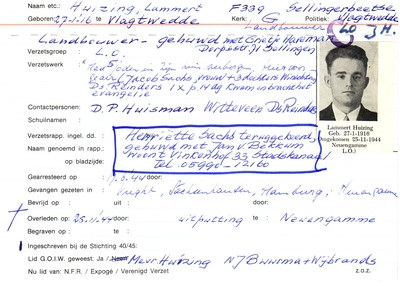 Naam etc.: Huizing, Lammert F339 Sellingerbeetse
27-1-16 te Vlagtwedde Kerk: G Politiek: Vlagtwedde
Landbouwer
Landbouwer - gehuwd met Huisman
Dorpsstr. Sellingen LO JH.
Verzetsgroep: L.O.
Verzetswerk: Had Joden in zijn huis
(Jacob Sachs, vrouw + 3 dochters
Ds. Reinders 1x p. 14 dg kwam in
evangelie
Contactpersonen: D.P. Huisman Witteveen Ds. Reinders
Schuilnaam :
Lammert Huizing
Geb. 27-1-1916
Omgekomen 25-11-1944
Neuengamme
L.O.)
Verzetsrapp. ingel. dd. : Henriette Sachs teruggekeerd
Naam genoemd in rapp. : gehuwd met Jan v Bekkum
op bladzijde: woont Vinkenhof 33 Stadskanaal
Tel. 05990-12160
Gearresteerd op : 44 door
Gevangen gezeten in : Vught, Hamburg, Neuengamme
Bevrijd op : uit : door :
Overleden op : 25-11-44 door uitputting te : Neuengamme
Begraven op : te :
Ingeschreven bij de Stichting 40/45:
Lid G.O.I.W. geweest: Ja / Neen Mevr Huizing NJ Buurma + Wijbrands
Nu lid van: N.F.R. / Expogé / Verenigd Verzet z.o.z.